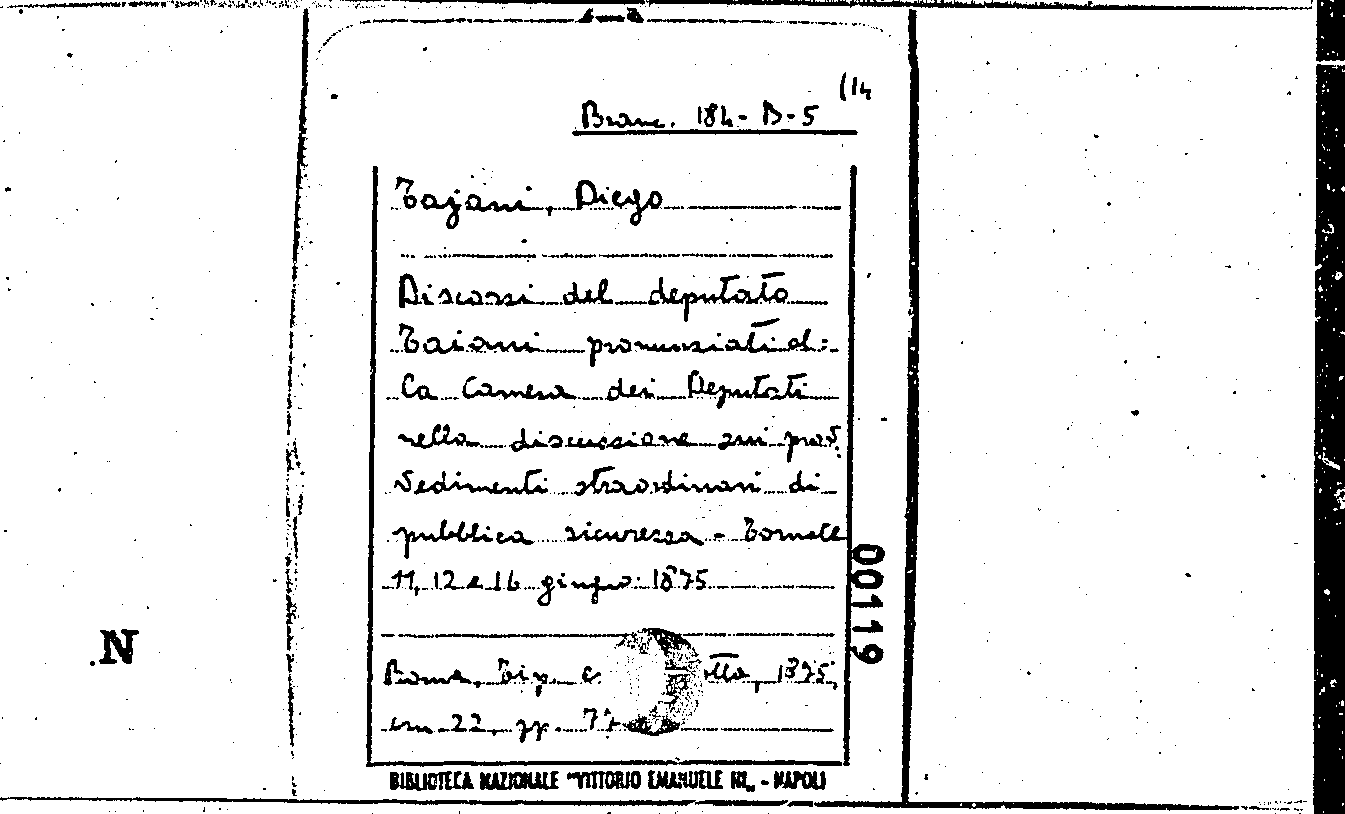 (14
Branc. 184-B-5
Tajani, Diego
Discorsi del deputato
Taiani pronunziati al=
la Camera dei Deputati
nella discussione sui prov=
vedimenti straordinari di
pubblica sicurezza - Tornate
11, 12 e 16 giugno 1875
00119
N
Roma, Tip. e. otta, 1875,
cm. 22, pp. 77
BIBLIOTECA NAZIONALE "VITTORIO EMANUELE III„ - NAPOLI